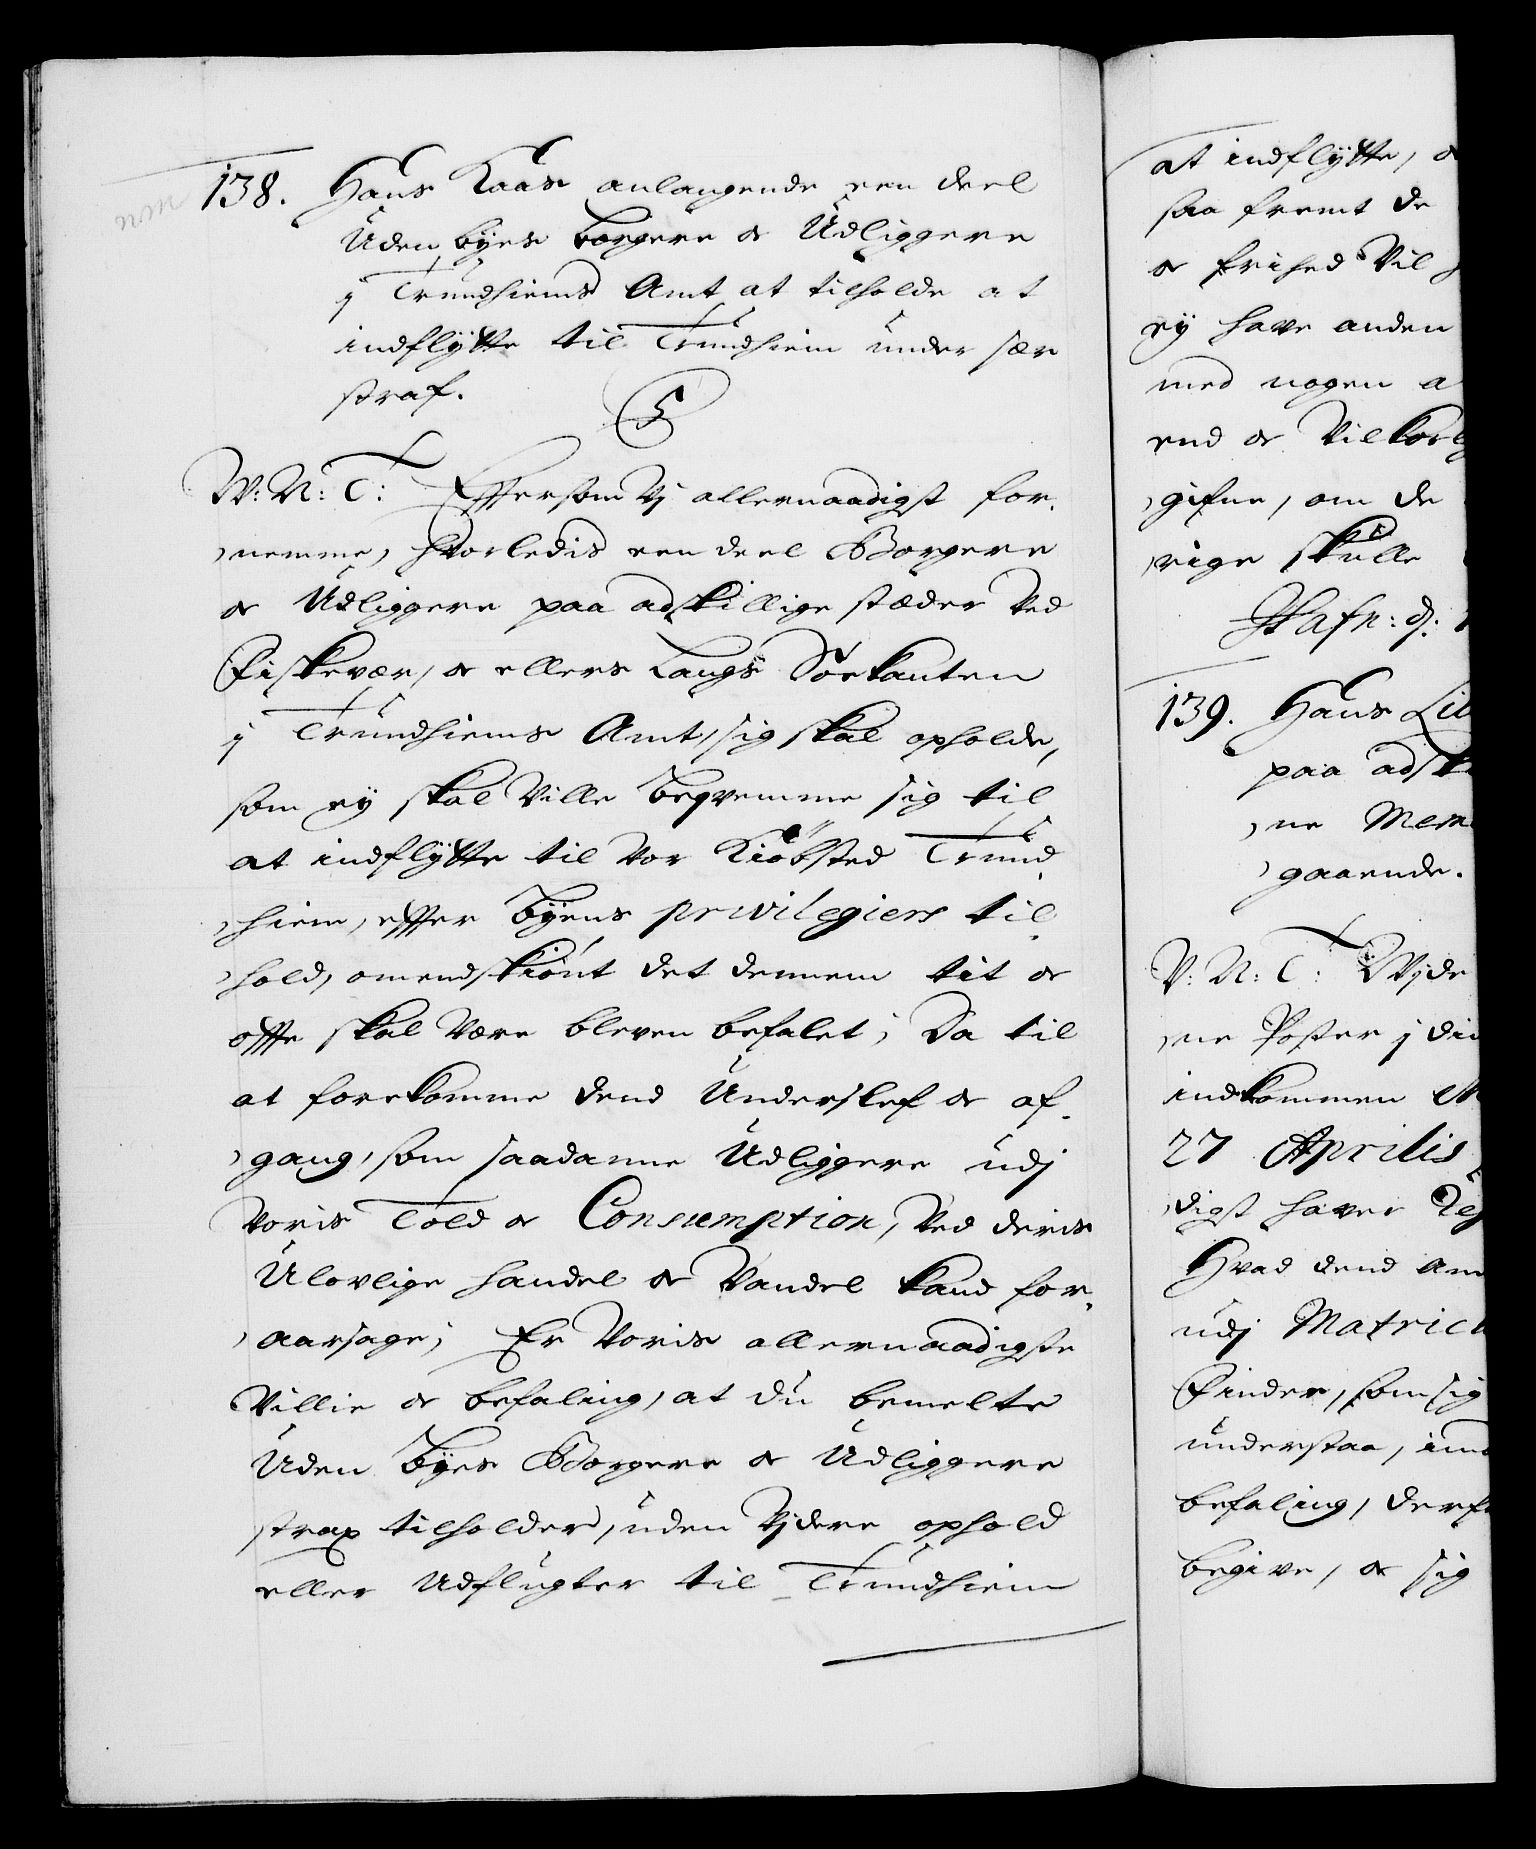 138. Hans Kaas anlangende een deel
Uden byes borgere & Udliggere
j Trundhiems Amt at tilholde at
indflÿtte til Trundhiem under sær
straf.
W: N: T: Effersom Vj allernaadigst for-
nemme, hvorledis een deel Borgere
& Udliggere paa adskillige stæder Ved
Fiskevær, & ellers Langs Söekanten
j Trundhiems Amt, sig skal opholde,
som eÿ skal Ville beqvemme sig til
at indflÿtte til Vor Kiöbsted Trund-
hiem, effter bÿens privilegiers til-
hold, omendskiönt det dennem tit &
offte skal Være bleven befalet; Da til
at forekomme dend Underslef & af-
gang, som saadanne Udliggere udj
Voris Told & Consumption, Ved deris
Ulovlige handel & Vandel kand for-
aarsage; Er Voris allernaadigste
Villie & befaling, at du bemelte
Uden bÿes Borgere & Udliggere
strax tilholder, uden Vjdere ophold
eller Udflugter til Trundhiem
at indflÿtte, &
saa fremt de
& frihed Vil
eÿ have anden
med nogen a
end & Vilkorl
gifne, om de
rige skulle
Hafn: d:
139. Hans Lil
paa adsk
ne Mem
gaaende.
V: N: T: Vjde
ne Poster j di
indkommen M
27 Aprilis
digst haver Re
Hvad dend Am
udj Matricu
Finder, som sig
understaa, im
befaling, derf
begive, & sig